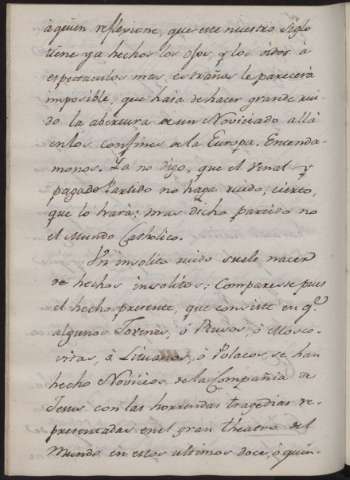 aquien reflexione, que este nuestro Siglo
tiene ya hechos los ojos, y los oidos à
espectaculos mas estraños le parecerá
imposible, que haia de hacer grande rui
do la abertura de un Noviciado allà
en los confines de la Europa. Entenda-
monos. Ya no digo, que el Venal y
pagado Partido no haga ruido, cierto,
que lo hará: mas dicho partido no
el Mundo Catholico.
Un insolito ruido suele nacer
de hechos insolitos: Comparese pues
el hecho presente, que consiste en q.e
algunos Jovenes, ò Prusos, ò Mosco-
vitas, ò Lituanos, ò Polacos, se han
hecho Novicios de la Compañia de
Jesus con las horrendas tragedias re-
presentadas en el gran theatro del
Mundo en estos ultimos doce, ò quin-